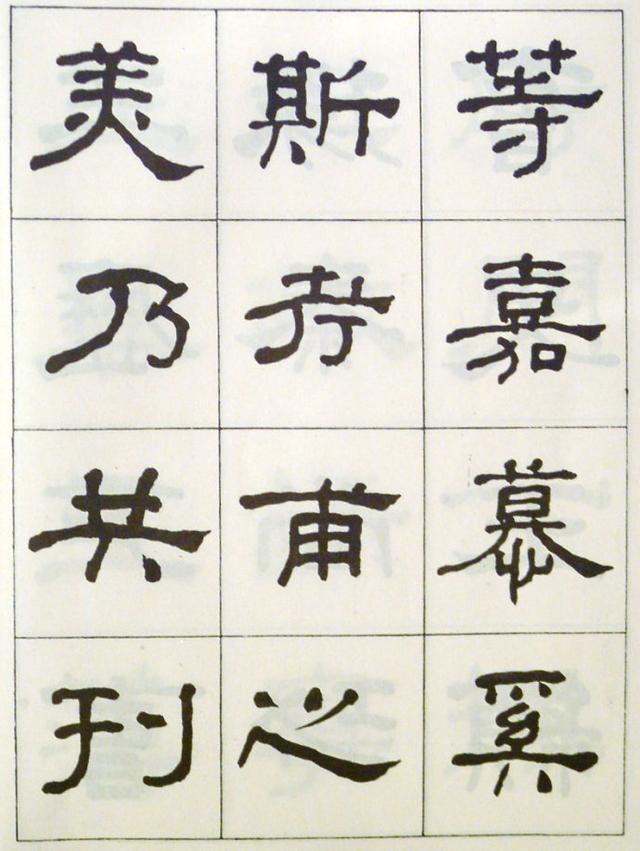 等嘉慕奚
斯考甫之
美乃共刊